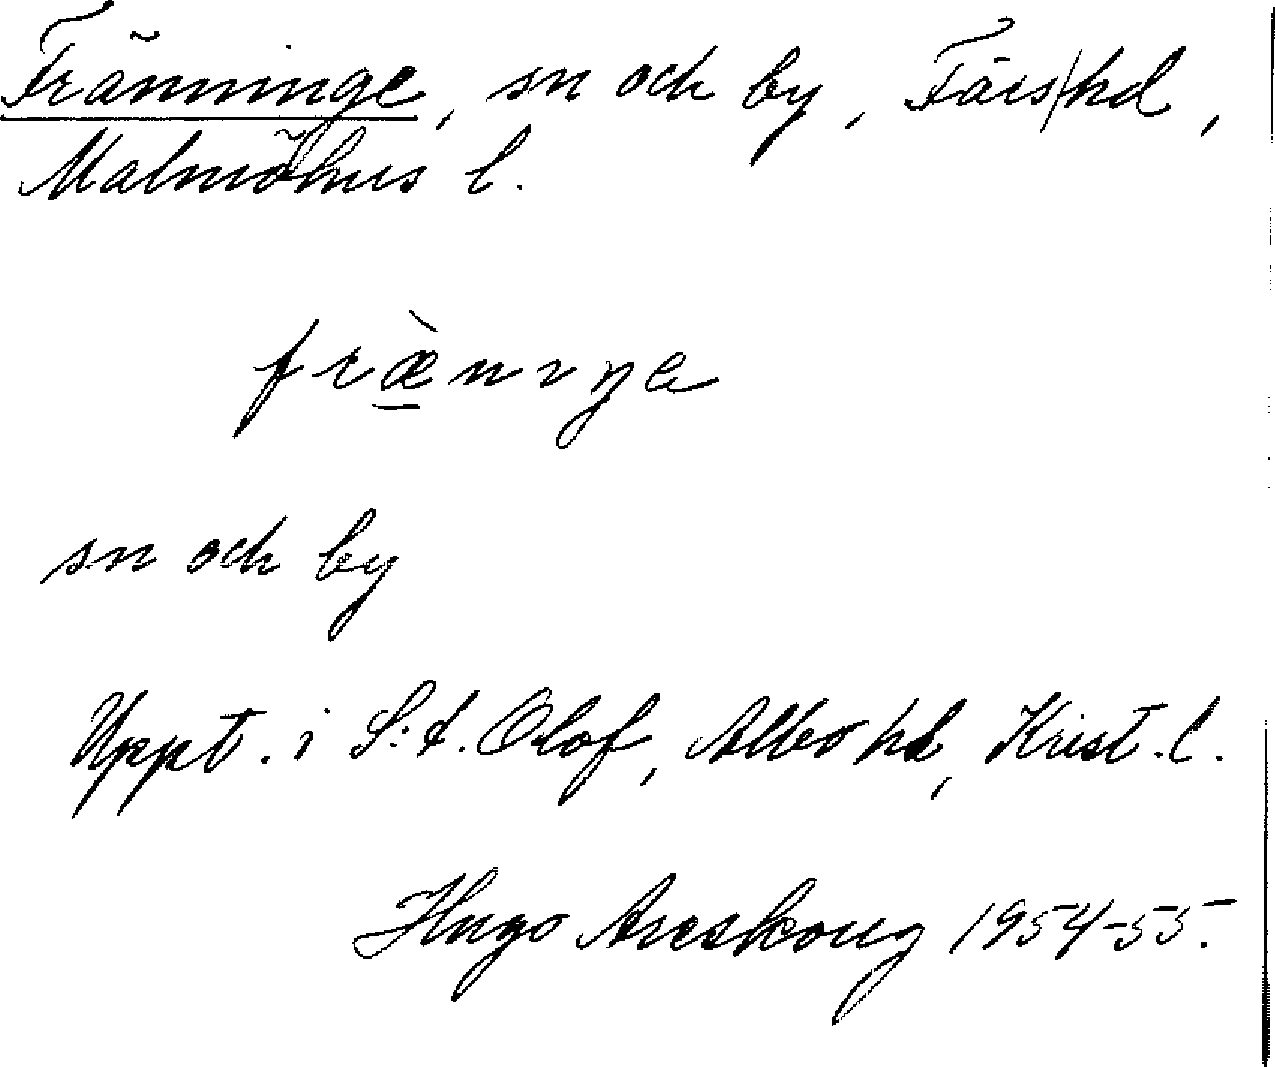 Fränninge, sn och by, Färs hd,
Malmöhus l.
fræ̀nıŋe
sn och by
Uppt. i S:t. Olof, Albo hd, Krist. l.
Hugo Areskoug 1954-55.